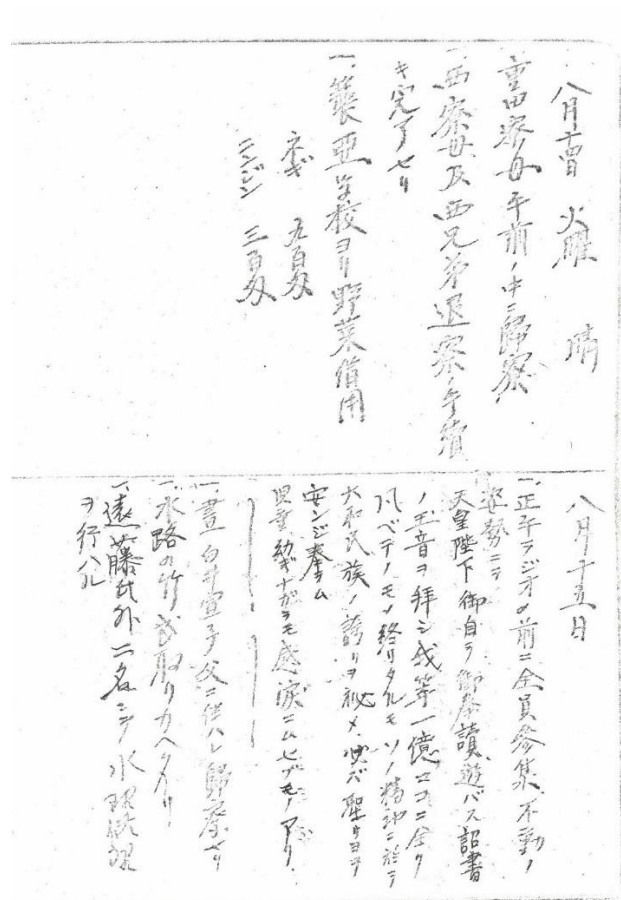 八月十四日 火曜 晴
一、重田寮母午前ノ中ニ歸寮、
一、西寮母及西兄弟退寮ノ手續
キ完了セリ
一、興亜学校ヨリ野菜借用
ネギ 九百匁
ニンジン 三百匁
八月十五日
一、正午ラジオノ前ニ全員参集、不動ノ
姿勢ニテ
天皇陛下御自ラ御奉讀遊バス詔書
ノ玉音ヲ拝シ我等一億ココニ全ク
凡ベテノモノ終リタルモソノ精神ニ於テ
大和民族ノ誇リヲ秘メ
安ンジ奉ラム
児童幼キナガラモ感涙ニムセブモノアリ
一、晝 白井宣子父ニ伴ハレ歸寮セリ
一、水路の竹 取リカヘタリ
一、遠藤氏外二名ニテ水
ヲ行ハル